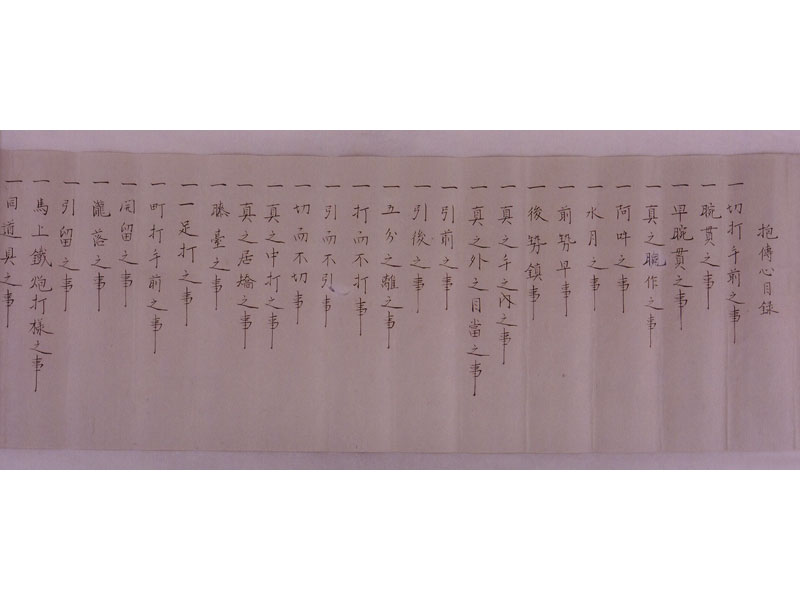 抱傳心目録
一切打手前之事
一腕貫之事
一早腕貫之事
一真之腕作之事
一阿吽之事
一水月之事
一前勢早事
一後勢鎮事
一真之手之内之事
一真之外之目當之事
一引前之事
一引後之事
一五分之離之事
一打而不打事
一引而不引事
一切而不切事
一真之中打之事
一真之居矯之事
一膝臺之事
一一足打之事
一町打手前之事
一同留之事
一瀧落之事
一引留之事
一馬上鐵炮打様之事
一同道具之事